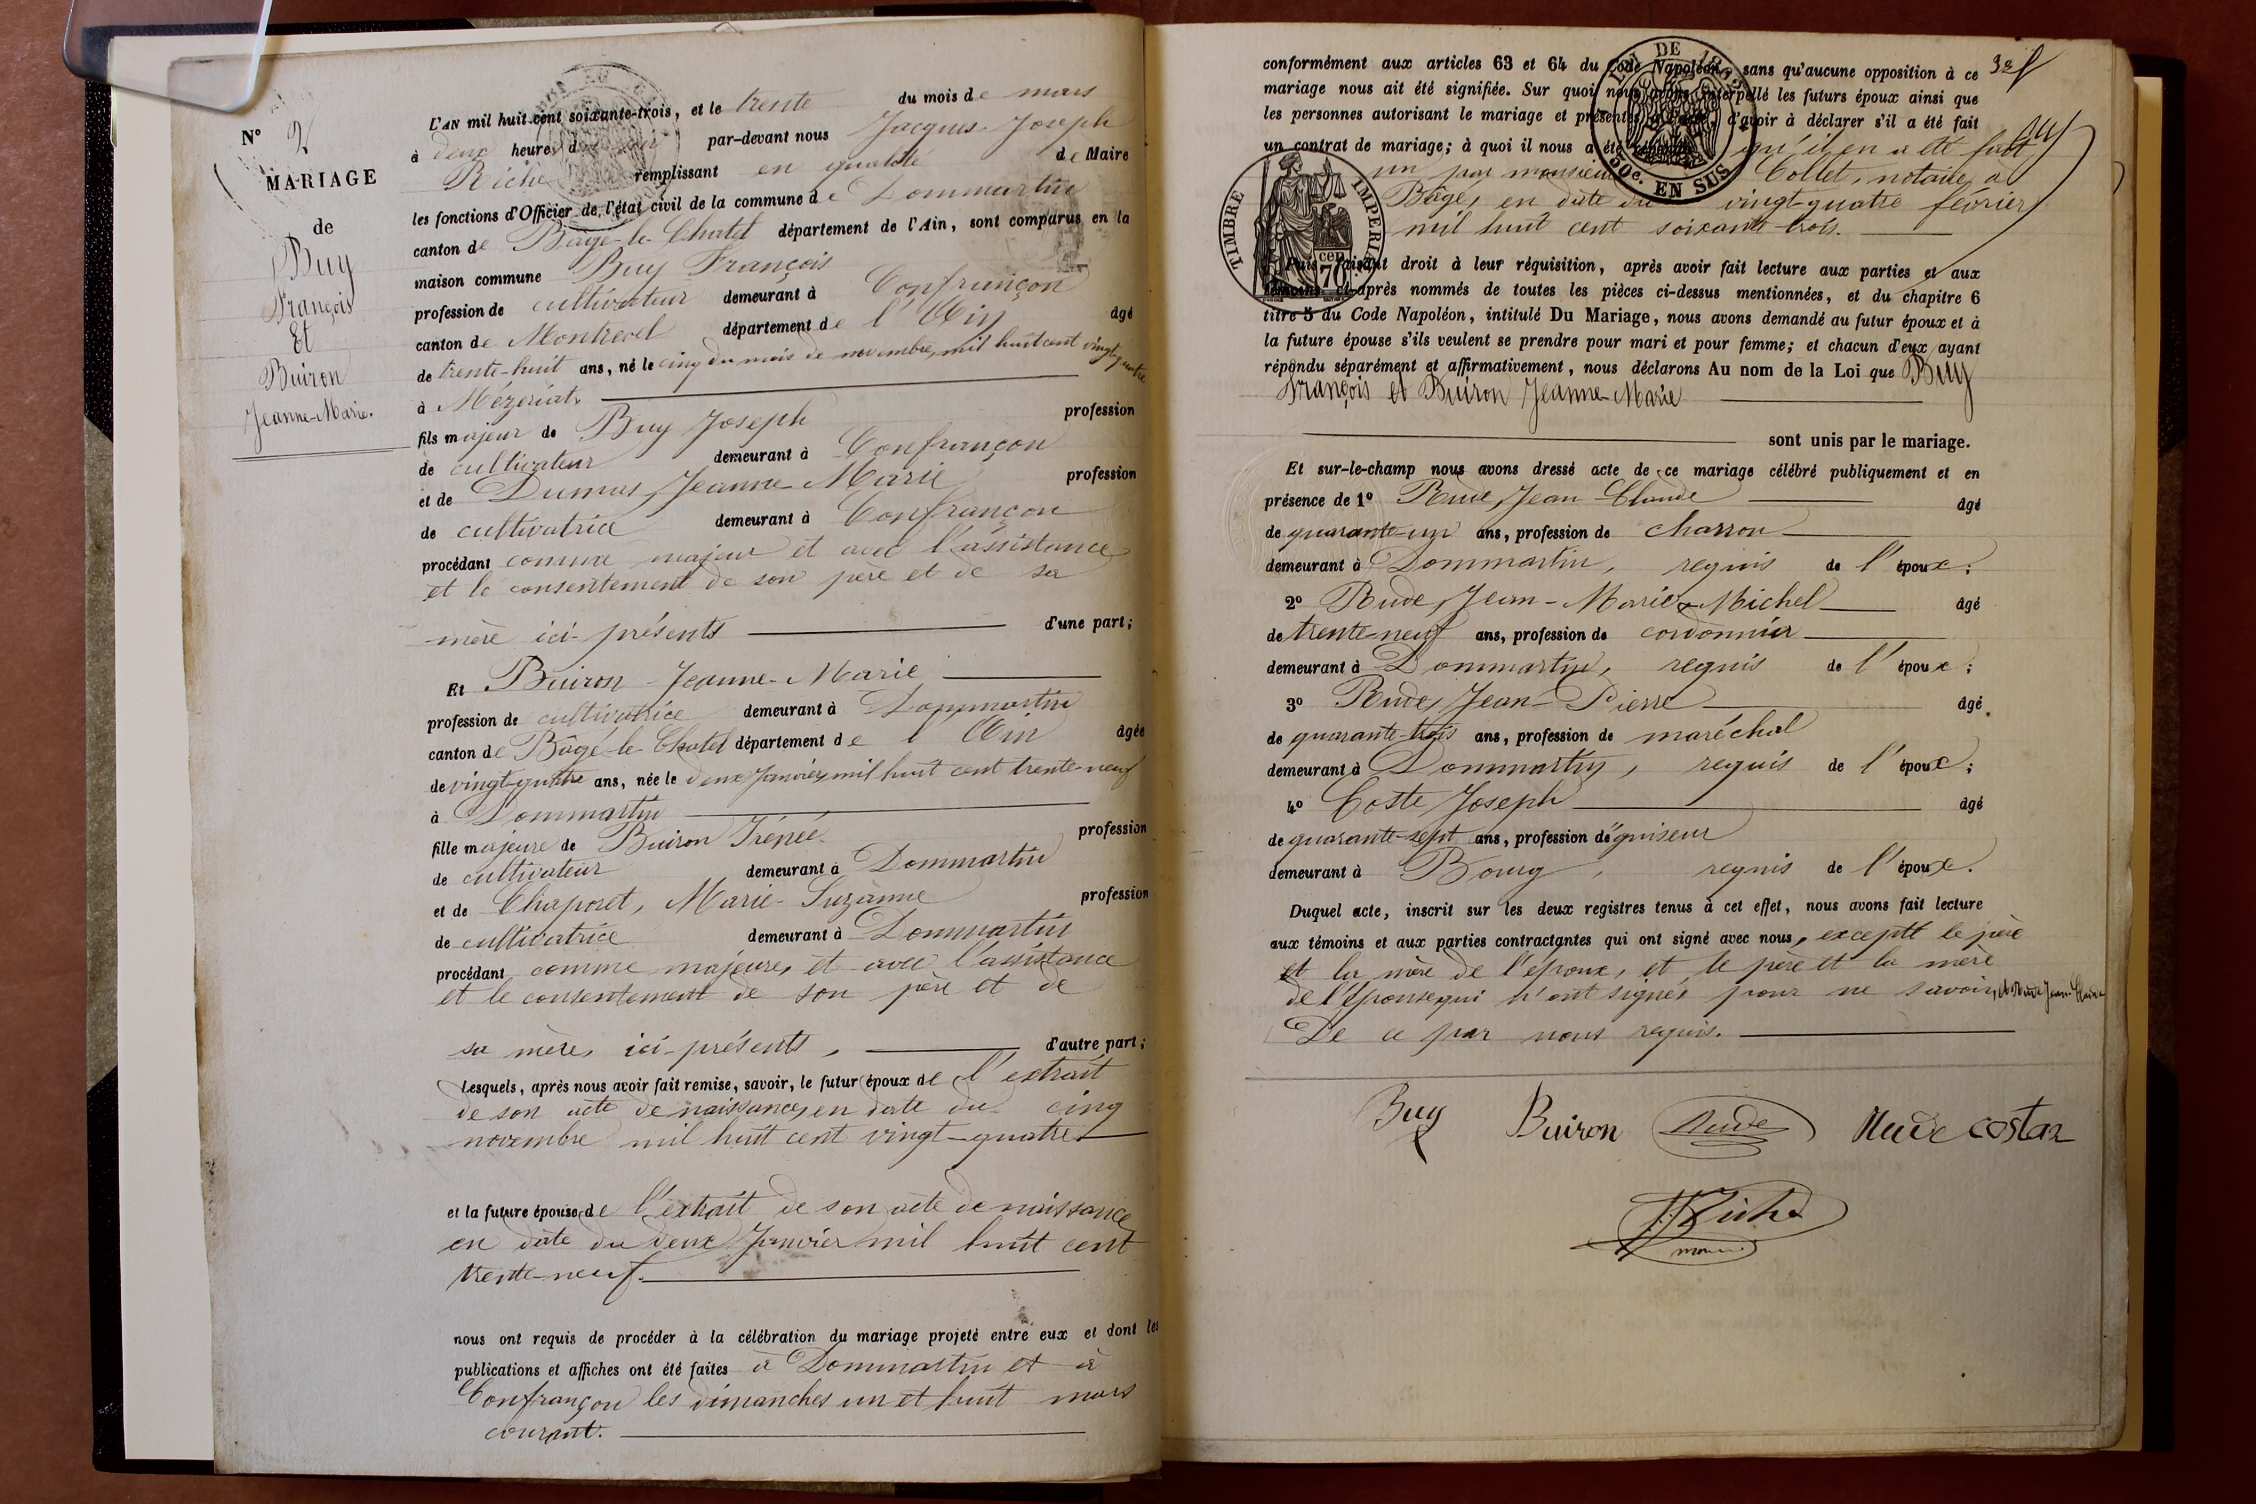 N° 2
MARIAGE
de
Buy
François
Et
Buiron
Jeanne-Marie.
L'AN mil huit cent soixante-trois, et le trente du mois de mars
à deux heures du soir par-devant nous Jacques-Joseph
Riche remplissant en qualité de Maire
les fonctions d'Officier de l'état civil de la commune de Dommartin
canton de Bâgé-le-Chatel département de l'Ain, sont comparus en la
maison commune Buy François
profession de cultivateur demeurant à Confrançon
canton de Montrevel département de l'Ain âgé
de trente-huit ans, né le cinq du mois de novembre, mil huit cent vingt quatre
à Mézériat
fils majeur de Buy Joseph profession
de cultivateur demeurant à Confrançon
et de Dumas, Jeanne-Marie profession
de cultivatrice demeurant à Confrançon
procédant comme majeur et avec l'assistance
et le consentement de son père et de sa
mère ici-présents d'une part;
Et Buiron-Jeanne-Marie
profession de cultivatrice demeurant à Dommartin
canton de Bâgé-le-Chatel département de l'Ain âgée
de vingt-quatre ans, née le deux Janvier, mil huit cent trente-neuf
à Dommartin
fille majeure de Buiron Irénée profession
de cultivateur demeurant à Dommartin
et de Chaporet, Marie-Suzanne profession
de cultivatrice demeurant à Dommartin
procédant comme majeure, et avec l'assistance
et le consentement de son père et de
sa mère, ici-présents, d'autre part;
Lesquels, après nous avoir fait remise, savoir, le futur époux de l'extrait
de son acte de naissance, en date du cinq
novembre mil huit cent vingt-quatre
et la future épouse de l'extrait de son acte de naissance
en date du deux Janvier mil huit cent
trente-neuf.
nous ont requis de procéder à la célébration du mariage projeté entre eux et dont les
publications et affiches ont été faites à Dommartin et à
Confrançon les dimanches un et huit mars
courant.
conformément aux articles 63 et 64 du Code Napoléon, sans qu'aucune opposition à ce
mariage nous ait été signifiée. Sur quoi nous avons interpellé les futurs époux ainsi que
les personnes autorisant le mariage et présentes d'avoir à déclarer s'il a été fait
un contrat de mariage; à quoi il nous a été répondu qu'il en a été fait
un par monsieur Collet, notaire à
Bâgé, en date du vingt-quatre février
mil huit cent soixante-trois.
TIMBRE IMPERIAL
70 cen
LOI DE
50c. EN SUS
Puis faisant droit à leur réquisition, après avoir fait lecture aux parties et aux
témoins ci-après nommés de toutes les pièces ci-dessus mentionnées, et du chapitre 6
titre 5 du Code Napoléon, intitulé Du Mariage, nous avons demandé au futur époux et à
la future épouse s'ils veulent se prendre pour mari et pour femme; et chacun d'eux ayant
répondu séparément et affirmativement, nous déclarons Au nom de la Loi que Buy
François et Buiron Jeanne-Marie
sont unis par le mariage.
Et sur-le-champ nous avons dressé acte de ce mariage célébré publiquement et en
présence de 1° Rude, Jean-Claude âgé
de quarante-un ans, profession de charron
demeurant à Dommartin, requis de l'époux;
2° Rude, Jean-Marie-Michel âgé
de trente-neuf ans, profession de cordonnier
demeurant à Dommartin, requis de l'époux;
3° Rude, Jean-Pierre âgé
de quarante-trois ans, profession de maréchal
demeurant à Dommartin, requis de l'époux;
4° Coste Joseph âgé
de quarante-sept ans, profession d'éguiseur
demeurant à Bourg, requis de l'époux.
Duquel acte, inscrit sur les deux registres tenus à cet effet, nous avons fait lecture
aux témoins et aux parties contractantes qui ont signé avec nous, excepté le père
et la mère de l'époux, et le père et la mère
de l'épouse qui n'ont signés pour ne savoir, et Rude Jean-Claude
De ce par nous requis.
Buy Buiron Rude Rude costaz
J.J. Riche
maire